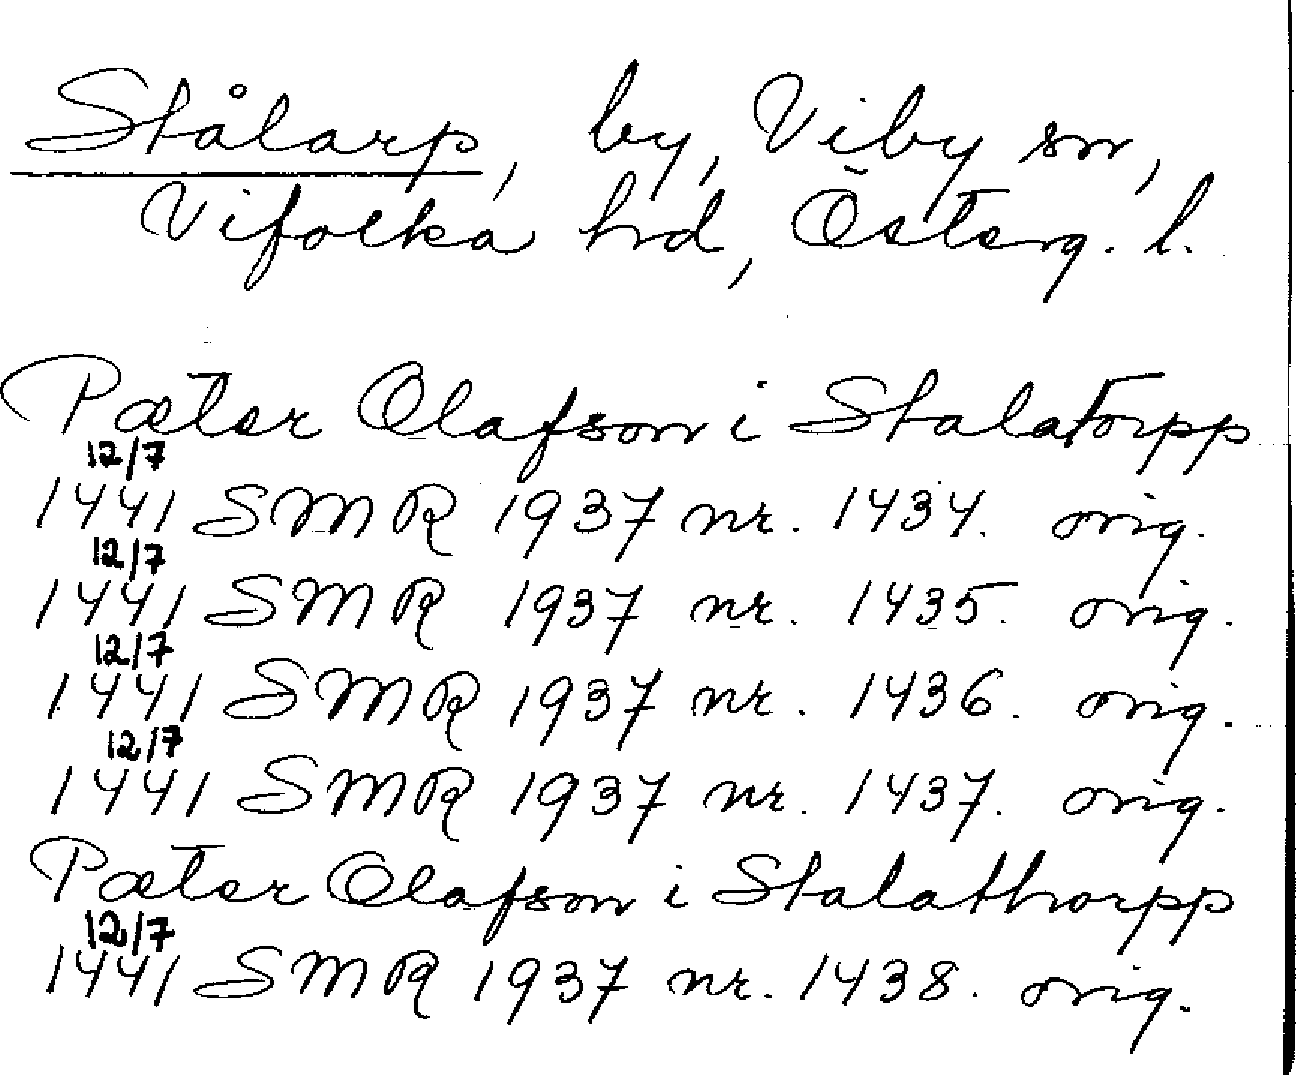 Stålarp, by, Viby sn,
Vifolka hd, Österg. l.
Pæter Olafson i Stalatorpp
12/7
1441 SMR 1937 nr. 1434. orig.
12/7
1441 SMR 1937 nr. 1435. orig.
12/7
1441 SMR 1937 nr. 1436. orig.
12/7
1441 SMR 1937 nr. 1437. orig.
Pæter Olafson i Stalathorpp
12/7
1441 SMR 1937 nr. 1438. orig.